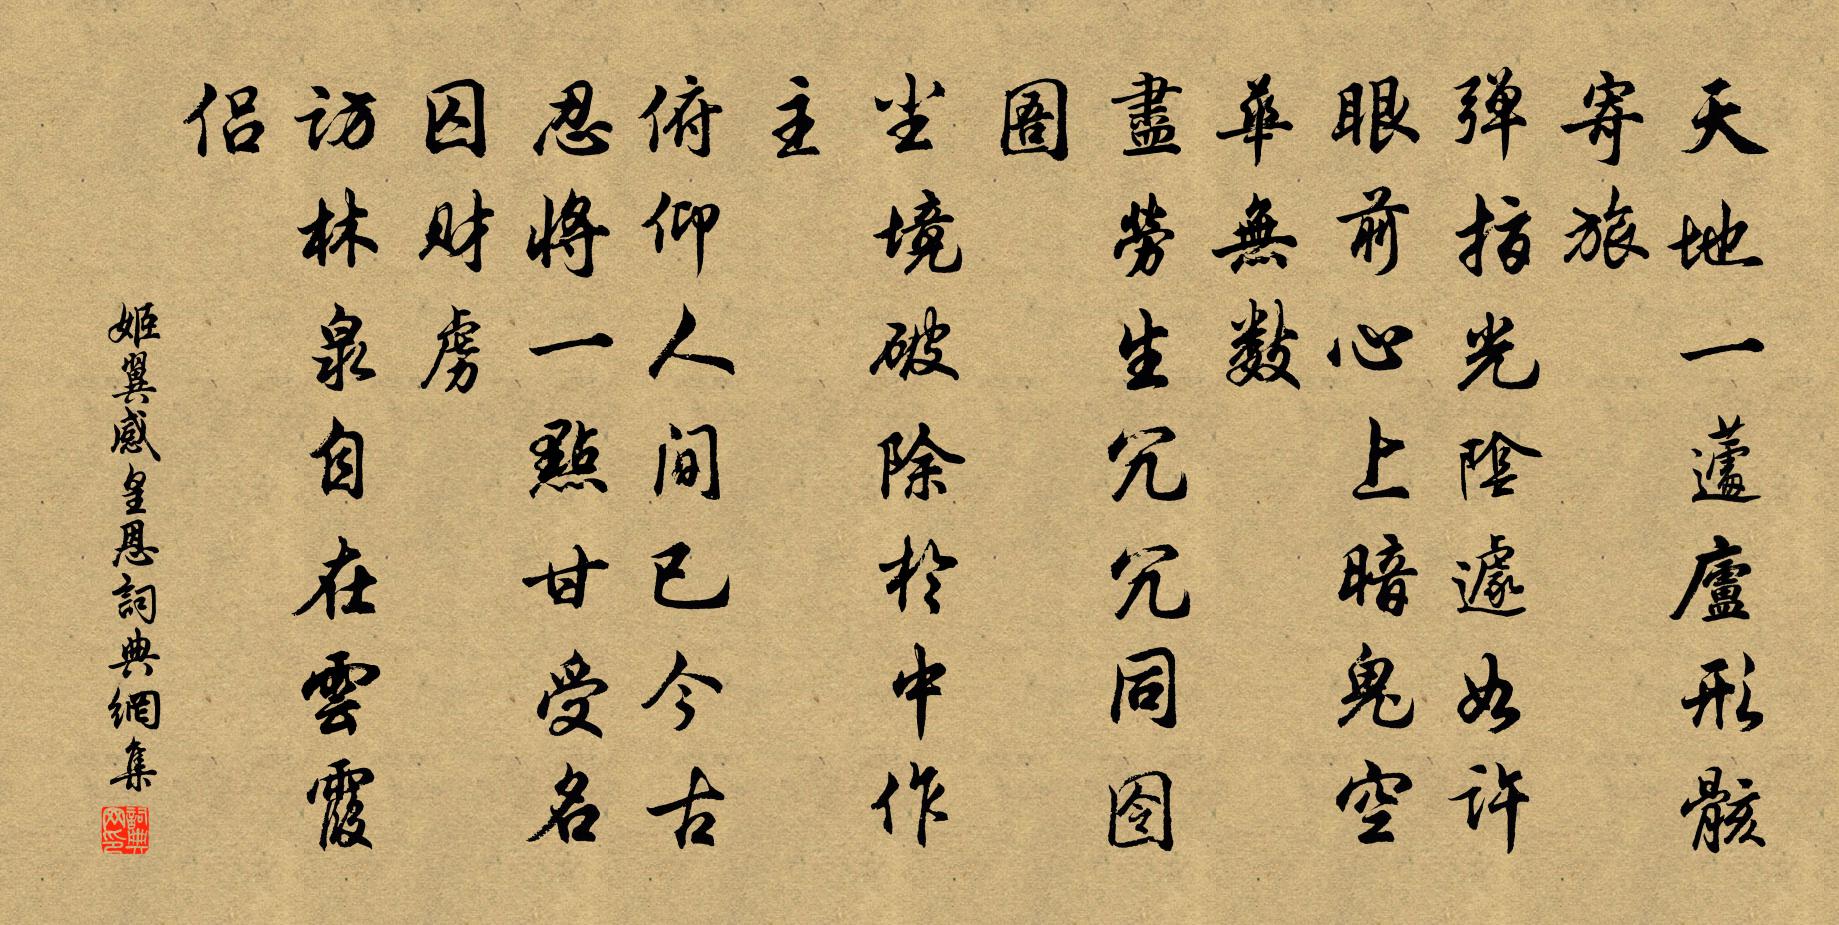 天地一蘧廬形骸
寄旅
彈指光陰遽如許
眼前心上暗鬼空
華無數
盡勞生冗冗同囹
圄
尘境破除於中作
主
俯仰人间已今古
忍將一點甘受名
囚财虜
访林泉自在雲霞
侣
姬翼感皇恩詞典網集
詞典网印